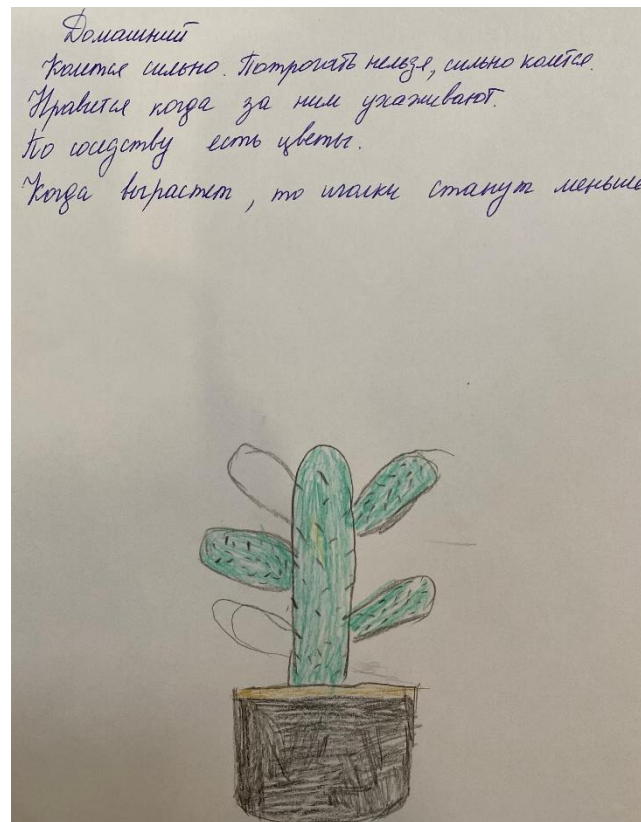 Домашний
Колется сильно. Потрогать нельзя, сильно колется.
Нравится когда за ним ухаживают.
По соседству есть цветы.
Когда вырастет, то иголки станут меньше